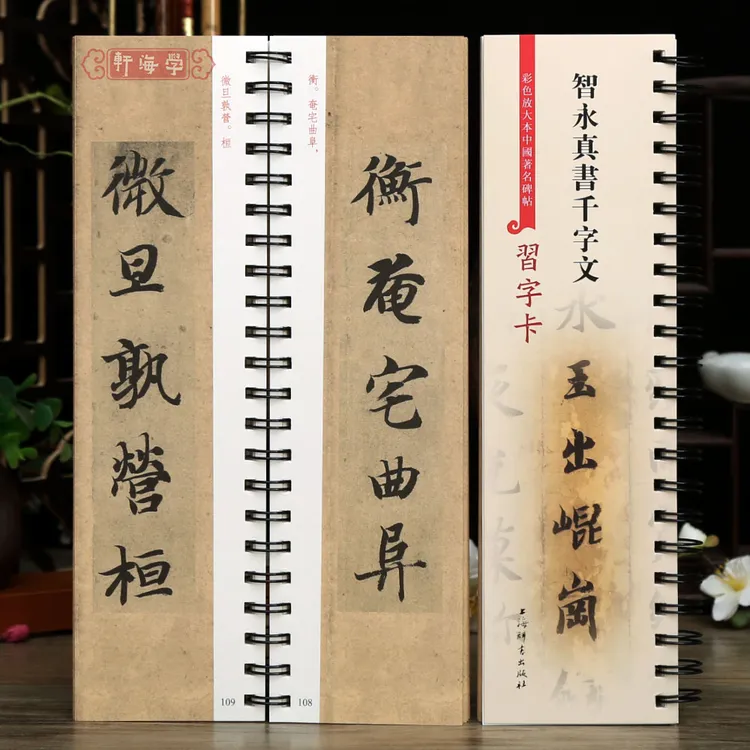 學海軒
衡。奄宅曲阜,
衡奄宅曲阜
108
微旦孰營。桓
微旦孰營桓
109
彩色放大本中國著名碑帖
智永真書千字文
習字卡
永
玉出崐崗
上海辭書出版社